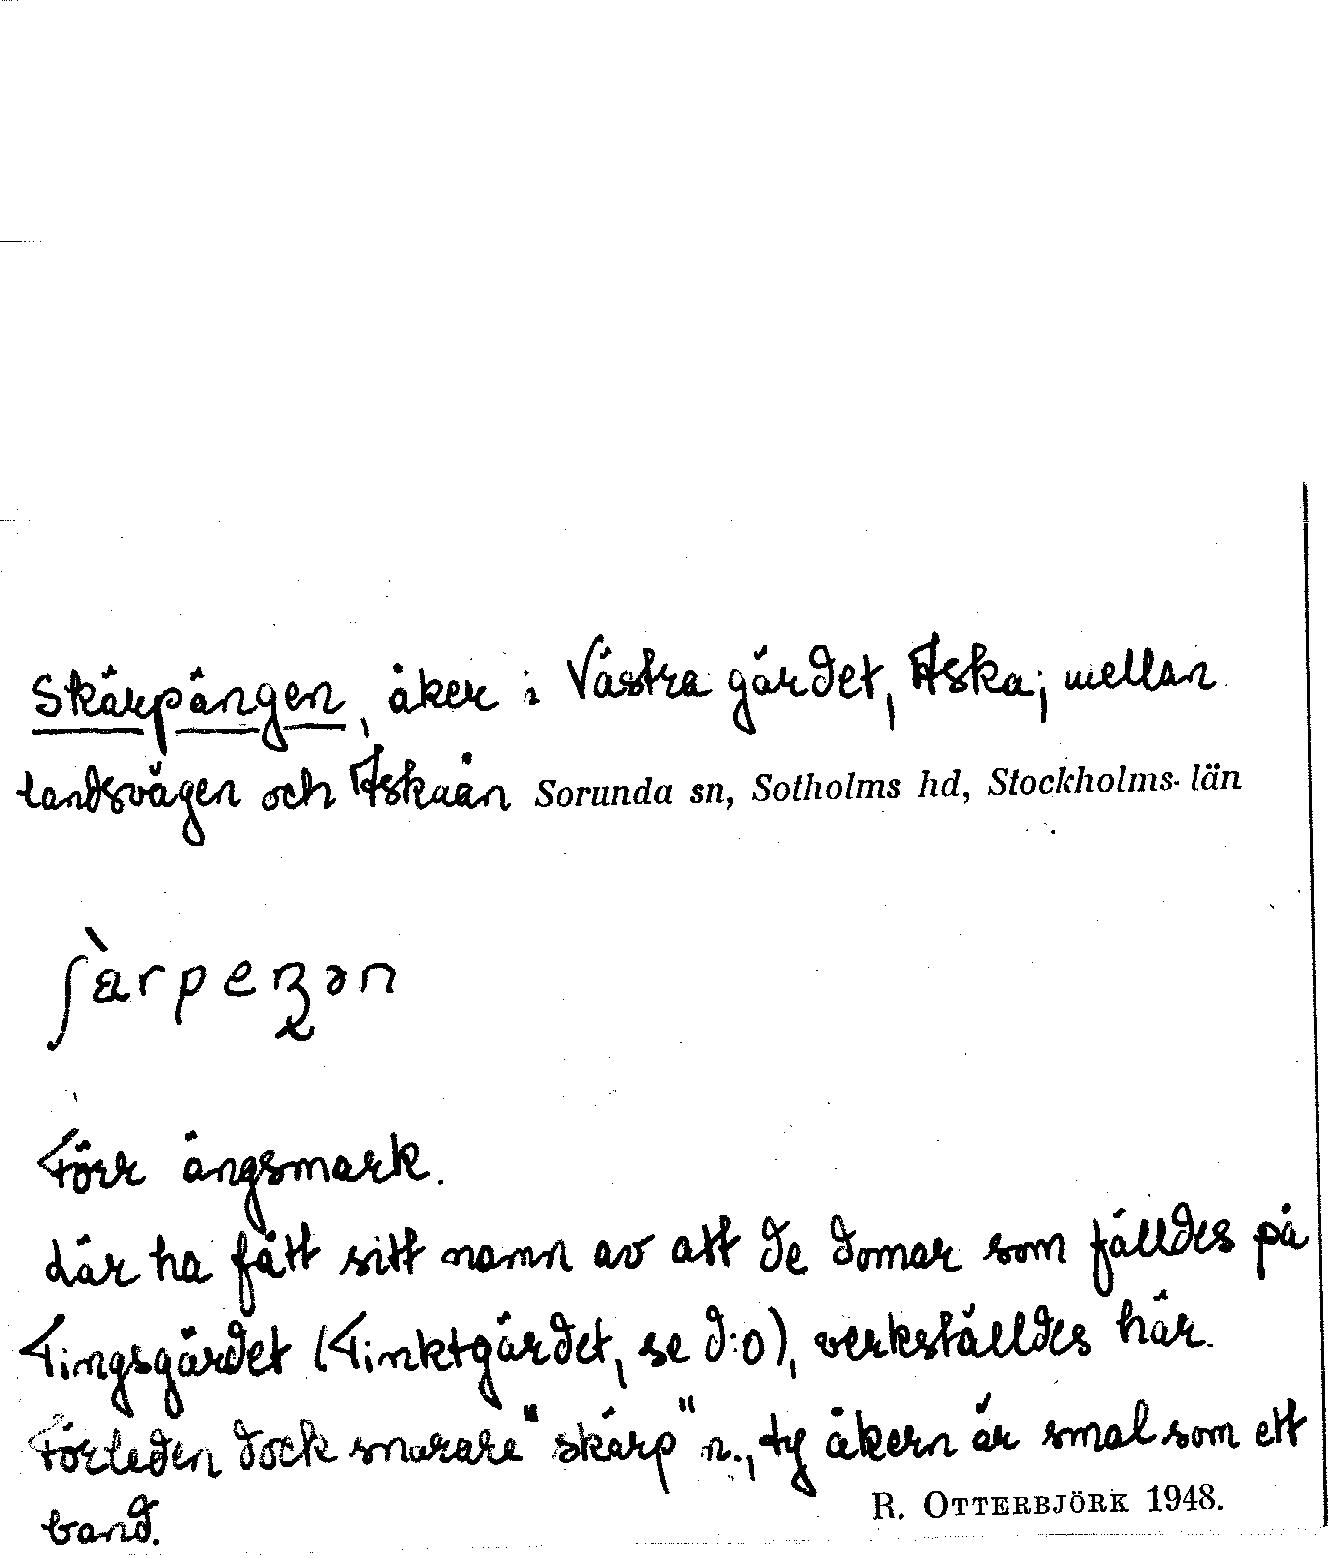 Skärpängen, åker i Västra gärdet, Fiska; mellan
landsvägen och Fiskaån Sorunda sn, Sotholms hd, Stockholms län
Förr ängsmark.
Lär ha fått sitt namn av att de domar som fälldes på
Tingsgärdet (Tinktgärdet, se d:o), verkställdes här.
Förleden dock snarare "skärp" n., ty åkern är smal som ett
band.
R. OTTERBJÖRK 1948.